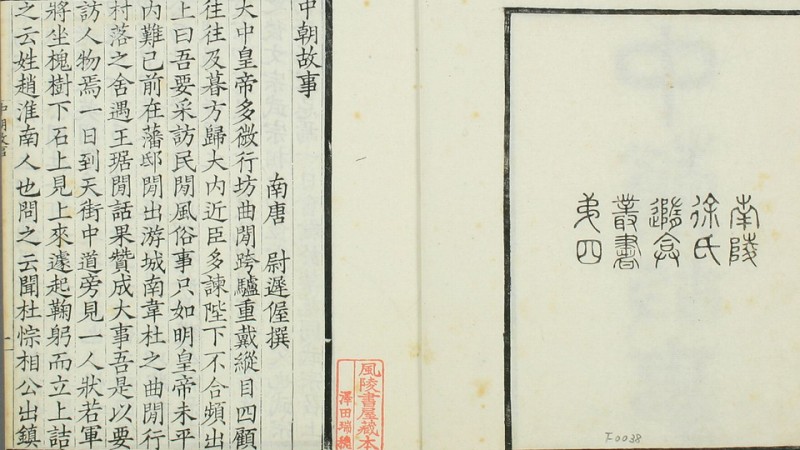 南陵
徐氏
隨盦
叢書
弟四
F-0038
風陵書屋藏本
澤田瑞穗
中朝故事
南唐 尉遲偓撰
大中皇帝多微行坊曲閒跨驢重戴縱目四顧
往往及暮方歸大内近臣多諫陛下不合頻出
上曰吾要采訪民閒風俗事只如明皇帝未平
内難已前在藩邸閒出游城南韋杜之曲閒行
村落之舍遇王琚閒話果贊成大事吾是以要
訪人物焉一日到天街中道旁見一人狀若軍
將坐槐樹下石上見上來遽起鞠躬而立上詰
之云姓趙淮南人也問之云聞杜悰相公出鎮
中朝故事